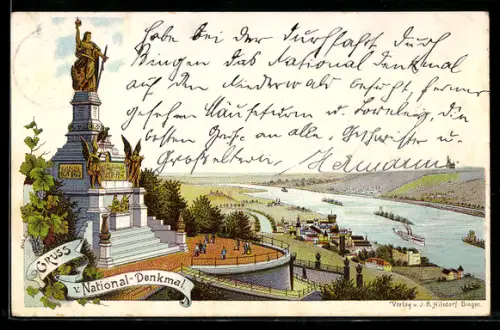 Habe bei der Durchfahrt durch
Bingen das National Denkmal
auf dem Niederwald besucht, ferner
gesehen Mäuseturm u. Loreley, die
besten Grüße an alle, Geschwister u.
Großeltern, Hermann
GRUSS
v. National-Denkmal.
Verlag v. J. B. Hilsdorf Bingen.